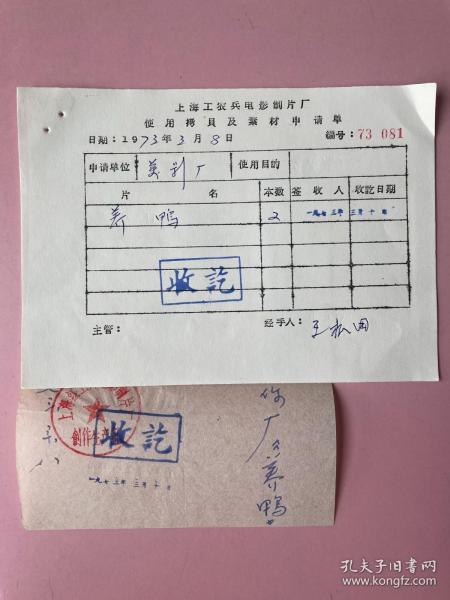 上海工农兵电影制片厂
使用拷贝及素材申请单
日期：1973年3月8日 编号：73 081
申请单位 美影厂 使用目的
片 名 本数 签收人 收讫日期
养鸭 2 一九七三年 三月 十日
收訖
主管： 经手人：
创作生产
收訖
一九七三年 三月 十日
你厂
养鸭
孔夫子旧书网
www.kongfz.com